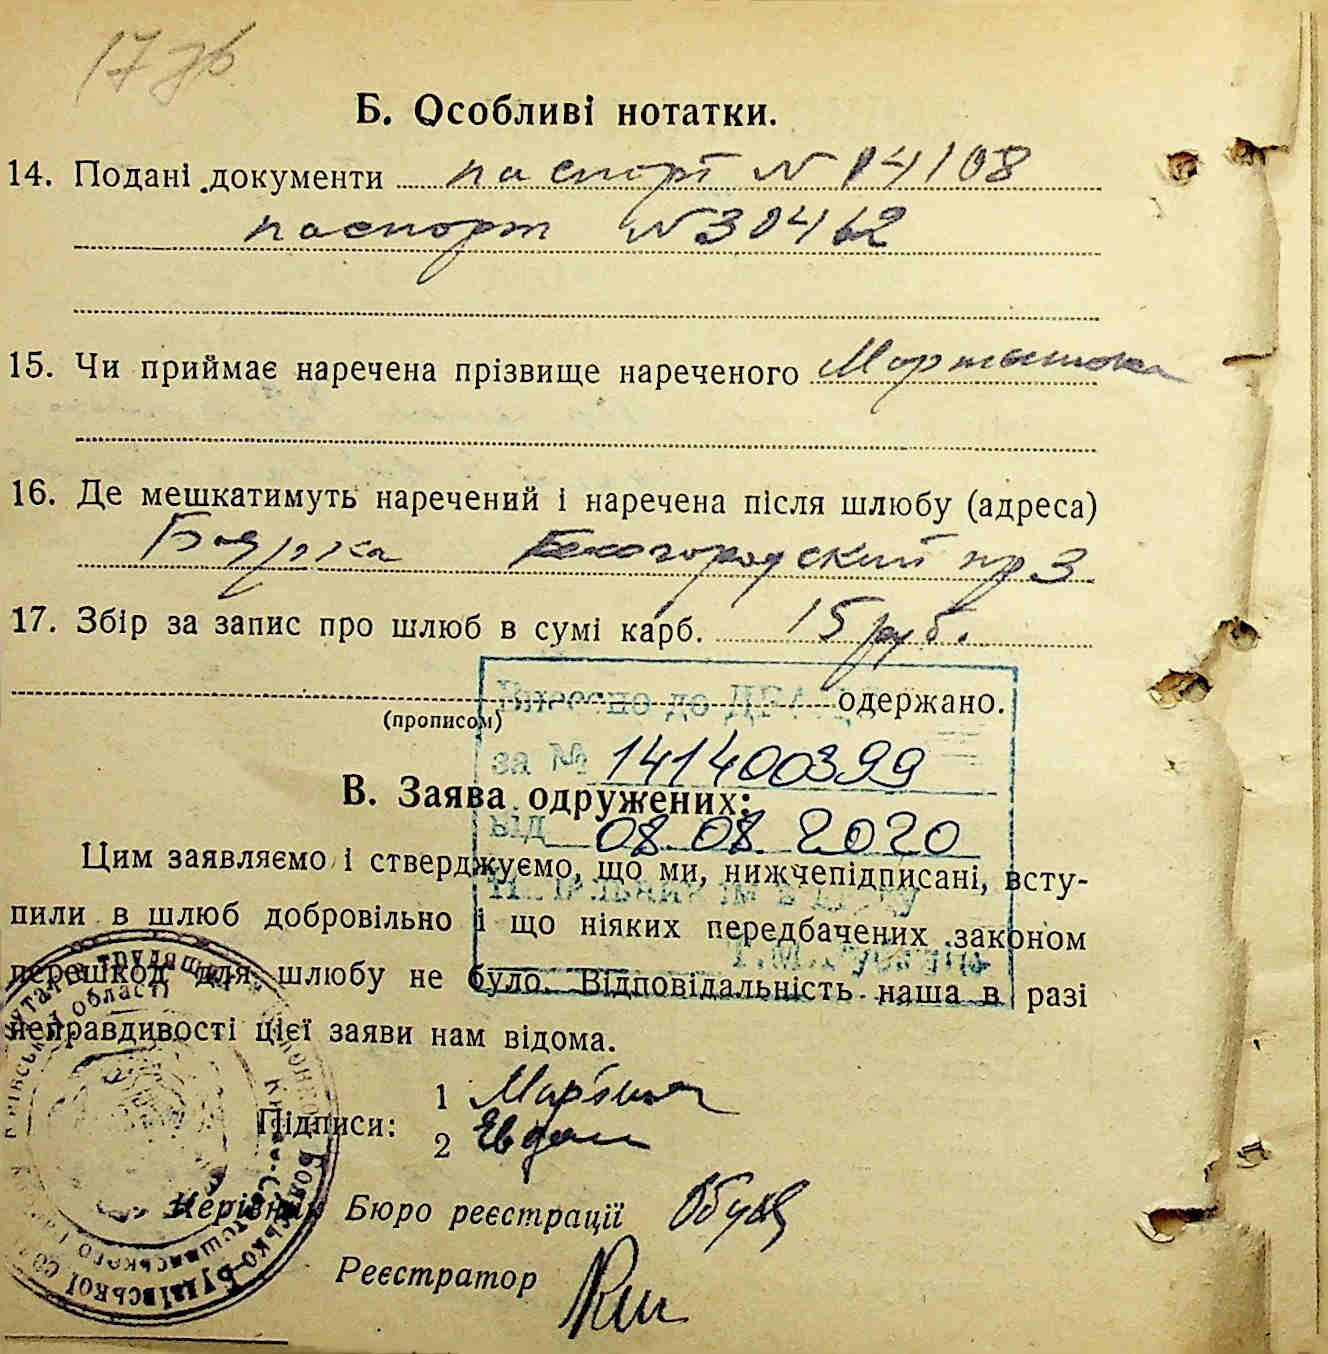 Б. Особливі нотатки.
14. Подані документи паспорт N 14108
паспорт N 30462
15. Чи приймає наречена прізвище нареченого
16. Де мешкатимуть наречений і наречена після шлюбу (адреса)
Боярка Белогородский пр 3
17. Збір за запис про шлюб в сумі карб. 15 руб.
одержано.
(прописом)
за № 141400399
В. Заява одружених:
від 08.08.2020
Цим заявляємо і стверджуємо, що ми, нижчепідписані, всту-
пили в шлюб добровільно і що ніяких передбачених законом
перешкод для шлюбу не було. Відповідальність наша в разі
неправдивості цієї заяви нам відома.
Підписи:
1
2
Керівник Бюро реєстрації
Реєстратор